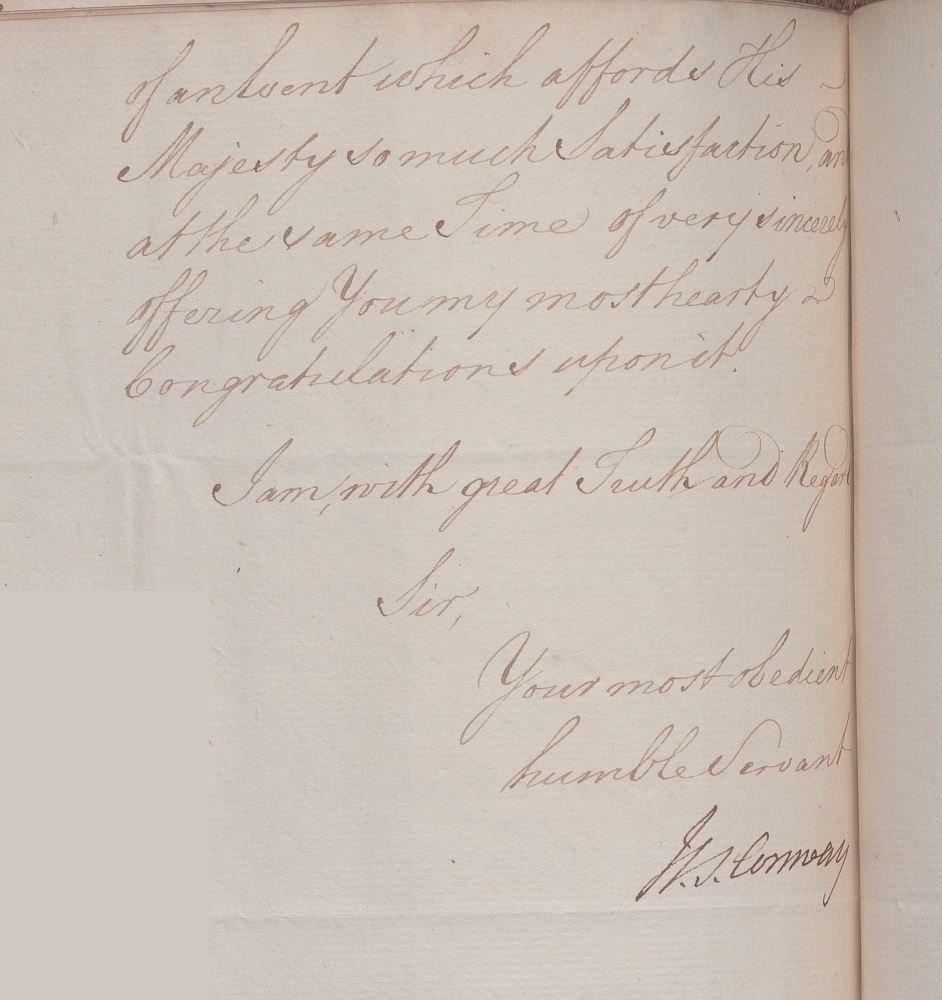 of an Event which affords His
Majesty so much Satisfaction, an
at the same Time of very sincerely
offering You my most hearty
Congratulations upon it.
I am, with great Truth and Regard
Sir,
Your most obedient
humble Servant
H. S. Conway